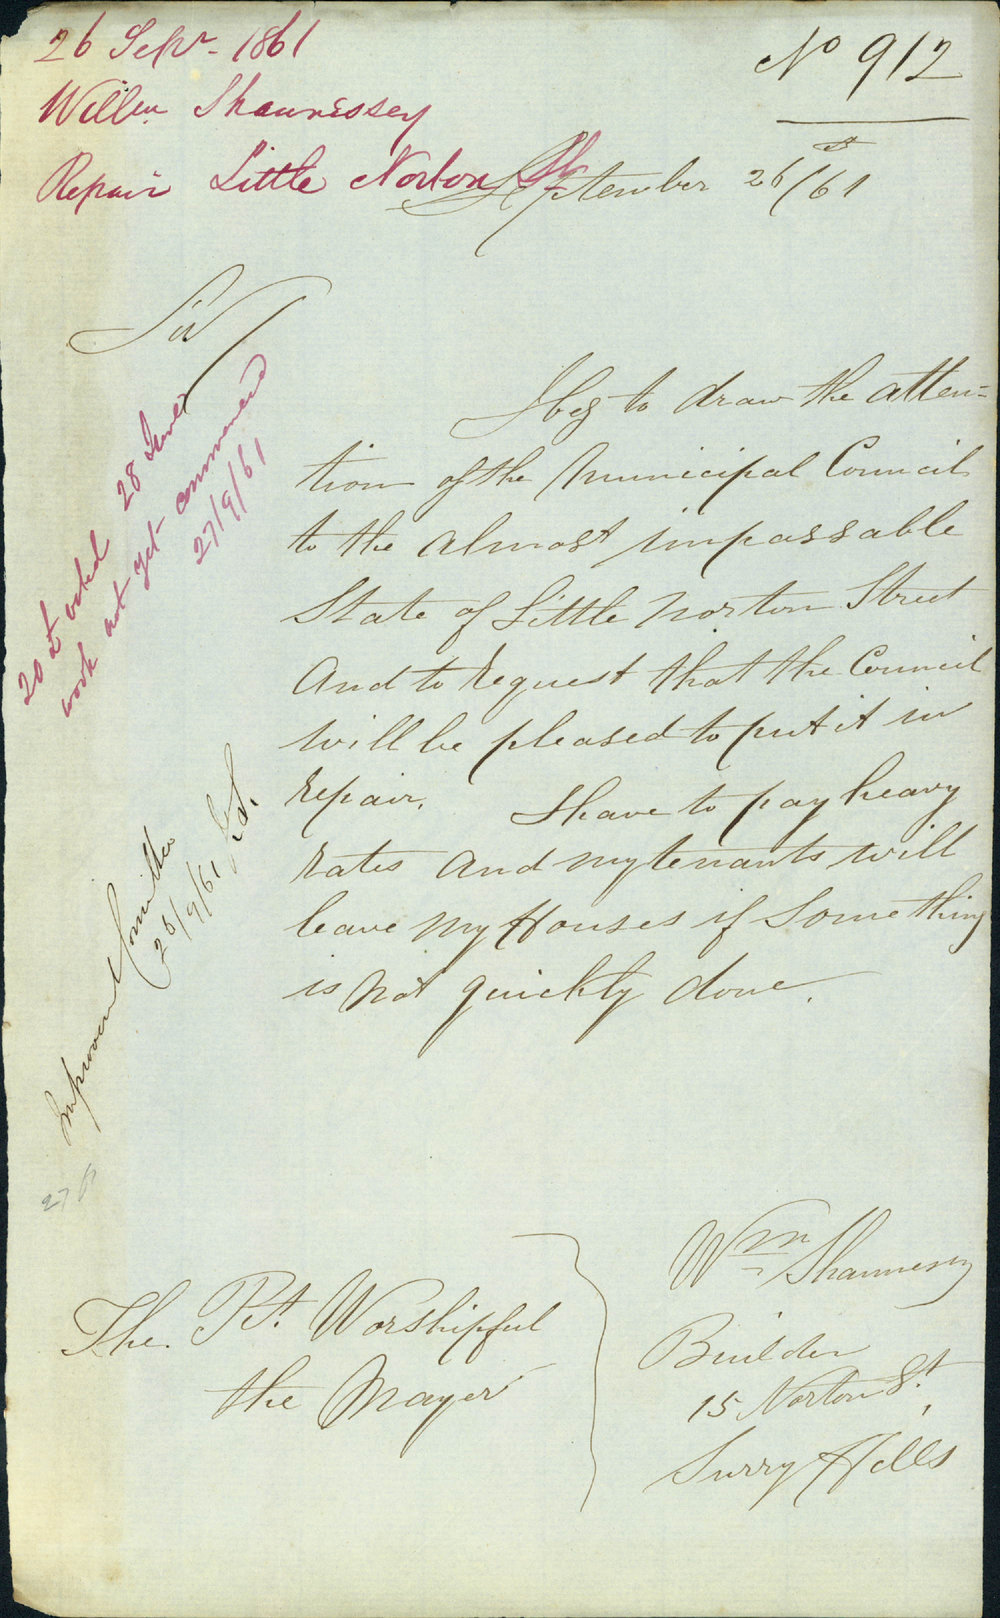 26 Sepr. 1861
Willm Shaunessey
Repair Little Norton St
No 912
September 26/61
Sir
I beg to draw the atten-
tion of the Municipal Council
to the almost impassable
State of Little Norton Street
And to request that the Council
will be pleased to put it in
repair. I have to pay heavy
rates and my tenants will
leave my Houses if Something
is not quickly done.
20 £ voted 28
work not yet commenced
27/9/61
Improvement Committee
26/9/61
27
The Rt. Worshipful
the Mayor
Wm Shaunnessy
Builder
15 Norton St,
Surry Hills